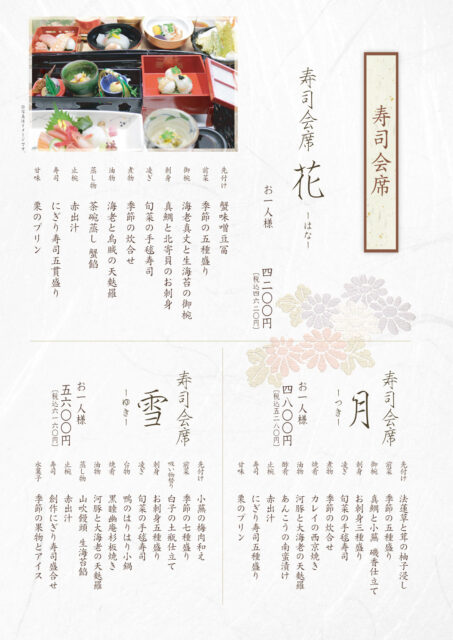 寿司会席
寿司会席 花 ーはなー
お一人様
四二〇〇円
〔税込四六二〇円〕
先付け 蟹味噌豆富
前菜 季節の五種盛り
御椀 海老真丈と生海苔の御椀
刺身 真鯛と北寄貝のお刺身
凌ぎ 旬菜の手毬寿司
煮物 季節の炊合せ
油物 海老と烏賊の天麩羅
蒸し物 茶碗蒸し 蟹餡
止椀 赤出汁
寿司 にぎり寿司五貫盛り
甘味 栗のプリン
※写真はイメージです。
寿司会席 月 ーつきー
お一人様
四八〇〇円
〔税込五二八〇円〕
先付け 法蓮草と茸の柚子浸し
前菜 季節の五種盛り
御椀 真鯛と小蕪 磯香仕立て
刺身 お刺身三種盛り
凌ぎ 旬菜の手毬寿司
煮物 季節の炊合せ
焼肴 カレイの西京焼き
油物 河豚と大海老の天麩羅
酢肴 あんこうの南蛮漬け
止椀 赤出汁
寿司 にぎり寿司五種盛り
甘味 栗のプリン
寿司会席 雪 ーゆきー
お一人様
五六〇〇円
〔税込六一六〇円〕
先付け 小蕪の梅肉和え
前菜 季節の七種盛り
吸い物替り 白子の土瓶仕立て
刺身 お刺身五種盛り
凌ぎ 旬菜の手毬寿司
台物 鴨のはりはり小鍋
焼肴 黒睦幽庵杉板焼き
油物 河豚と大海老の天麩羅
蒸し物 山吹饅頭 生海苔餡
止椀 赤出汁
寿司 創作にぎり寿司盛合せ
水菓子 季節の果物とアイス